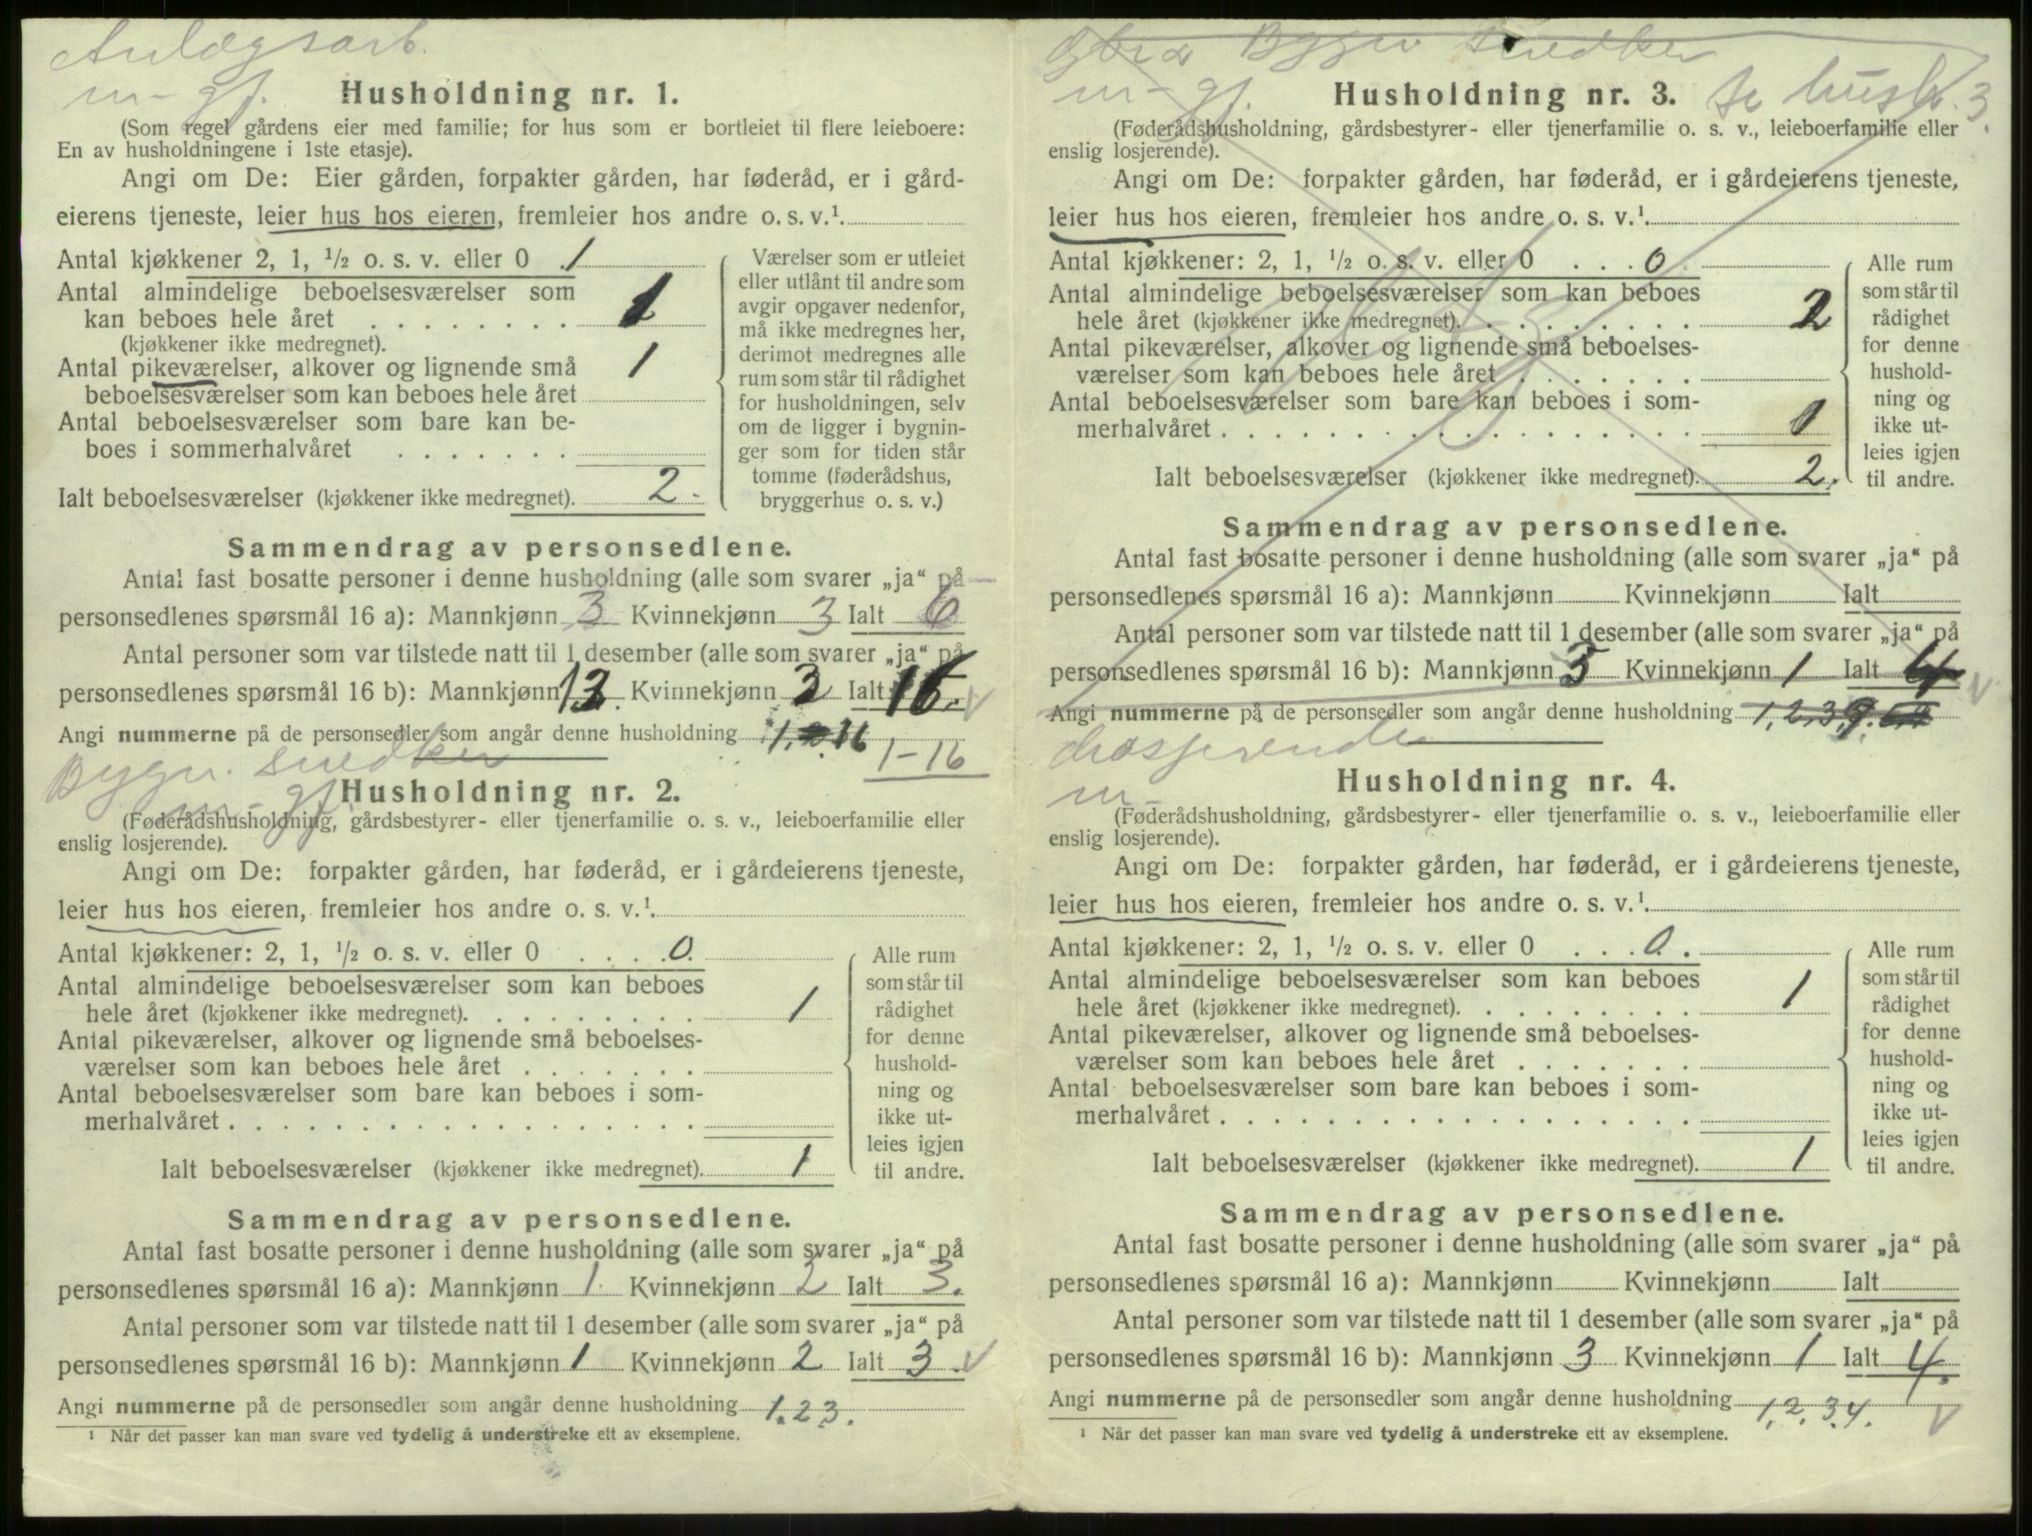 Anlægsarb.
m - gf.
Husholdning nr. 1.
(Som regel gårdens eier med familie; for hus som er bortleiet til flere leieboere:
En av husholdningene i 1ste etasje).
Angi om De: Eier gården, forpakter gården, har føderåd, er i gård-
eierens tjeneste, leier hus hos eieren, fremleier hos andre o. s. v.¹
Antal kjøkkener 2, 1, ½ o. s. v. eller 0 1
Antal almindelige beboelsesværelser som
kan beboes hele året . . . . . . . . 1
(kjøkkener ikke medregnet).
Antal pikeværelser, alkover og lignende små 1
beboelsesværelser som kan beboes hele året
Antal beboelsesværelser som bare kan be-
boes i sommerhalvåret . . . . . . .
Ialt beboelsesværelser (kjøkkener ikke medregnet). 2.
Værelser som er utleiet
eller utlånt til andre som
avgir opgaver nedenfor,
må ikke medregnes her,
derimot medregnes alle
rum som står til rådighet
for husholdningen, selv
om de ligger i bygnin-
ger som for tiden står
tomme (føderådshus,
bryggerhus o. s. v.)
Sammendrag av personsedlene.
Antal fast bosatte personer i denne husholdning (alle som svarer „ja“ på
personsedlenes spørsmål 16 a): Mannkjønn 3 Kvinnekjønn 3 Ialt 6
Antal personer som var tilstede natt til 1 desember (alle som svarer „ja“ på
personsedlenes spørsmål 16 b): Mannkjønn 13. Kvinnekjønn 3 Ialt 16.
Angi nummerne på de personsedler som angår denne husholdning 1. 16
1-16
Bygn. snedker
m - gf.
Husholdning nr. 2.
(Føderådshusholdning, gårdsbestyrer- eller tjenerfamilie o. s. v., leieboerfamilie eller
enslig losjerende).
Angi om De: forpakter gården, har føderåd, er i gårdeierens tjeneste,
leier hus hos eieren, fremleier hos andre o. s. v.¹
Antal kjøkkener: 2, 1, ½ o. s. v. eller 0 . . . . 0.
Antal almindelige beboelsesværelser som kan beboes
hele året (kjøkkener ikke medregnet). . . . . . . . . 1
Antal pikeværelser, alkover og lignende små beboelses-
værelser som kan beboes hele året . . . . . . .
Antal beboelsesværelser som bare kan beboes i som-
merhalvåret . . . . . . . . . . . . . . . . . .
Ialt beboelsesværelser (kjøkkener ikke medregnet). 1
Alle rum
som står til
rådighet
for denne
hushold-
ning og
ikke ut-
leies igjen
til andre.
Sammendrag av personsedlene.
Antal fast bosatte personer i denne husholdning (alle som svarer „ja“ på
personsedlenes spørsmål 16 a): Mannkjønn 1. Kvinnekjønn 2 Ialt 3.
Antal personer som var tilstede natt til 1 desember (alle som svarer „ja“ på
personsedlenes spørsmål 16 b): Mannkjønn 1 Kvinnekjønn 2 Ialt 3.
Angi nummerne på de personsedler som angår denne husholdning 1.2 3.
¹ Når det passer kan man svare ved tydelig å understreke ett av eksemplene.
Bygn Snedker
m - gf. se hush. 3.
Husholdning nr. 3.
(Føderådshusholdning, gårdsbestyrer- eller tjenerfamilie o. s. v., leieboerfamilie eller
enslig losjerende).
Angi om De: forpakter gården, har føderåd, er i gårdeierens tjeneste,
leier hus hos eieren, fremleier hos andre o. s. v.¹
Antal kjøkkener: 2, 1, ½ o. s. v. eller 0 . . . 0.
Antal almindelige beboelsesværelser som kan beboes
hele året (kjøkkener ikke medregnet). . . . . . . . . 2
Antal pikeværelser, alkover og lignende små beboelses-
værelser som kan beboes hele året . . . . . . .
Antal beboelsesværelser som bare kan beboes i som-
merhalvåret . . . . . . . . . . . . . . . . . . 0
Ialt beboelsesværelser (kjøkkener ikke medregnet). 2.
Alle rum
som står til
rådighet
for denne
hushold-
ning og
ikke ut-
leies igjen
til andre.
Sammendrag av personsedlene.
Antal fast bosatte personer i denne husholdning (alle som svarer „ja“ på
personsedlenes spørsmål 16 a): Mannkjønn Kvinnekjønn Ialt
Antal personer som var tilstede natt til 1 desember (alle som svarer „ja“ på
personsedlenes spørsmål 16 b): Mannkjønn 3 Kvinnekjønn 1 Ialt 4
Angi nummerne på de personsedler som angår denne husholdning 1,2,3,
Losjerende
m -
Husholdning nr. 4.
(Føderådshusholdning, gårdsbestyrer- eller tjenerfamilie o. s. v., leieboerfamilie eller
enslig losjerende).
Angi om De: forpakter gården, har føderåd, er i gårdeierens tjeneste,
leier hus hos eieren, fremleier hos andre o. s. v.¹
Antal kjøkkener: 2, 1, ½ o. s. v. eller 0 . . . 0.
Antal almindelige beboelsesværelser som kan beboes
hele året (kjøkkener ikke medregnet). . . . . . . . . 1
Antal pikeværelser, alkover og lignende små beboelses-
værelser som kan beboes hele året . . . . . . .
Antal beboelsesværelser som bare kan beboes i som-
merhalvåret . . . . . . . . . . . . . . . . . .
Ialt beboelsesværelser (kjøkkener ikke medregnet). 1
Alle rum
som står til
rådighet
for denne
hushold-
ning og
ikke ut-
leies igjen
til andre.
Sammendrag av personsedlene.
Antal fast bosatte personer i denne husholdning (alle som svarer „ja“ på
personsedlenes spørsmål 16 a): Mannkjønn Kvinnekjønn Ialt
Antal personer som var tilstede natt til 1 desember (alle som svarer „ja“ på
personsedlenes spørsmål 16 b): Mannkjønn 3 Kvinnekjønn 1 Ialt 4.
Angi nummerne på de personsedler som angår denne husholdning 1,2,3,4.
¹ Når det passer kan man svare ved tydelig å understreke ett av eksemplene.